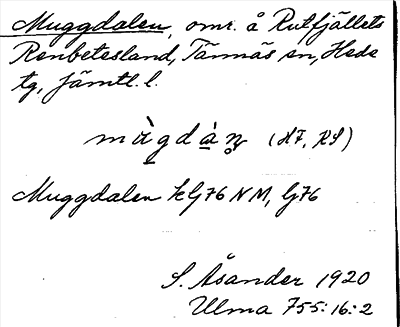 Muggdalen, omr. å Rutfjällets
Renbetesland, Tännäs sn, Hede
tg, Jämtl. l.
màgdàn̥ (HF, RS)
Muggdalen kG76 NM, G76
S. Åsander 1920
Ulma 755:16:2